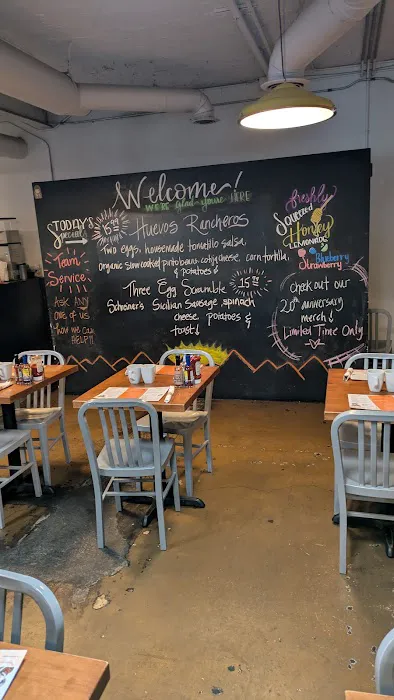 Welcome!
WE'RE Glad you're HERE
TODAY'S
Specials
15.99
Huevos Rancheros
Two eggs, housemade tomatillo salsa,
Organic slow cooked pinto beans, cotija cheese, corn tortilla,
& potatoes
Three Egg Scramble
15.99
Schreiner's Sicilian Sausage, spinach
cheese, potatoes &
toast!
Team
Service
ASK ANY
one of us
how we can
HELP!!
freshly
Squeezed
Honey
LEMONADE
Blueberry
Strawberry
check out our
20th anniversary
merch!
Limited Time Only